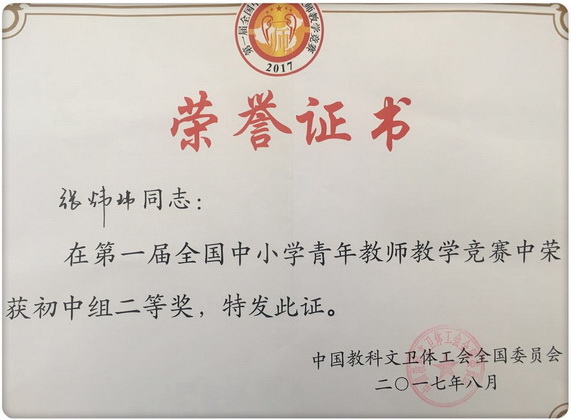 第一届全国中
师教学竞赛
2017
荣誉证书
张炜玮同志：
在第一届全国中小学青年教师教学竞赛中荣
获初中组二等奖，特发此证。
中国教科文卫体工会全国委员会
二〇一七年八月